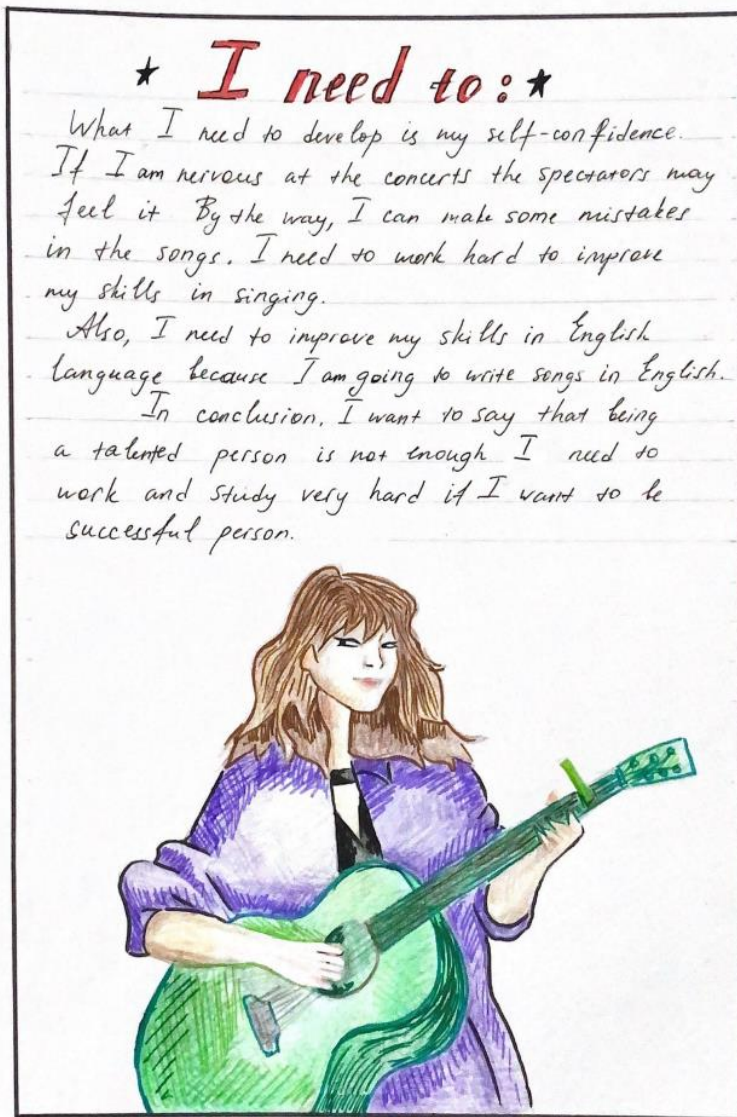 ★ I need to: ★
What I need to develop is my self-confidence.
If I am nervous at the concerts the spectators may
feel it By the way, I can make some mistakes
in the songs. I need to work hard to improve
my skills in singing.
Also, I need to improve my skills in English
language because I am going to write songs in English.
In conclusion. I want to say that being
a talented person is not enough I need to
work and study very hard if I want to be
successful person.